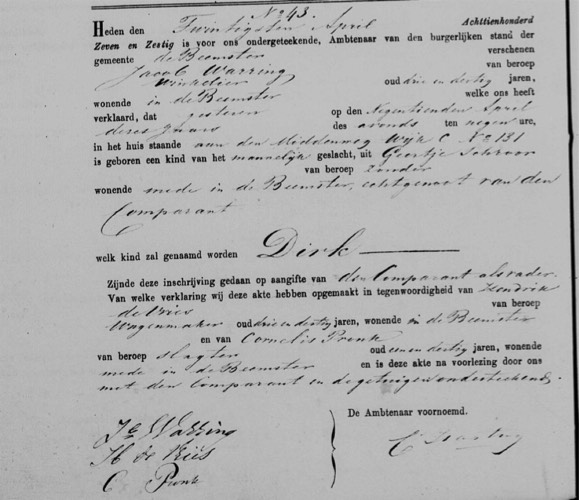 No 43.
Heden den Twintigsten April Achttienhonderd
Zeven en Zestig is voor ons ondergeteekende, Ambtenaar van den burgerlijken stand der
gemeente de Beemster verschenen
Jacob Warring van beroep
Winkelier oud drie en dertig jaren,
wonende in de Beemster welke ons heeft
verklaard, dat gisteren op den Negentienden April
dezes Jaars des avonds ten negen ure,
in het huis staande aan den Middenweg Wijk C No 131
is geboren een kind van het mannelijk geslacht, uit Geertje Schroor
van beroep zonder
wonende mede in de Beemster, echtgenoot van den
Comparant
welk kind zal genaamd worden Dirk
Zijnde deze inschrijving gedaan op aangifte van den Comparant als vader.
Van welke verklaring wij deze akte hebben opgemaakt in tegenwoordigheid van Hendrik
de Vries van beroep
Wagenmaker oud drie en dertig jaren, wonende in de Beemster
en van Cornelis Pronk
van beroep slagter oud een en dertig jaren, wonende
mede in de Beemster en is deze akte na voorlezing door ons
met den Comparant en de getuigen onderteekend.
De Ambtenaar voornoemd.
Jb Warring
H de Vries
C Pronk